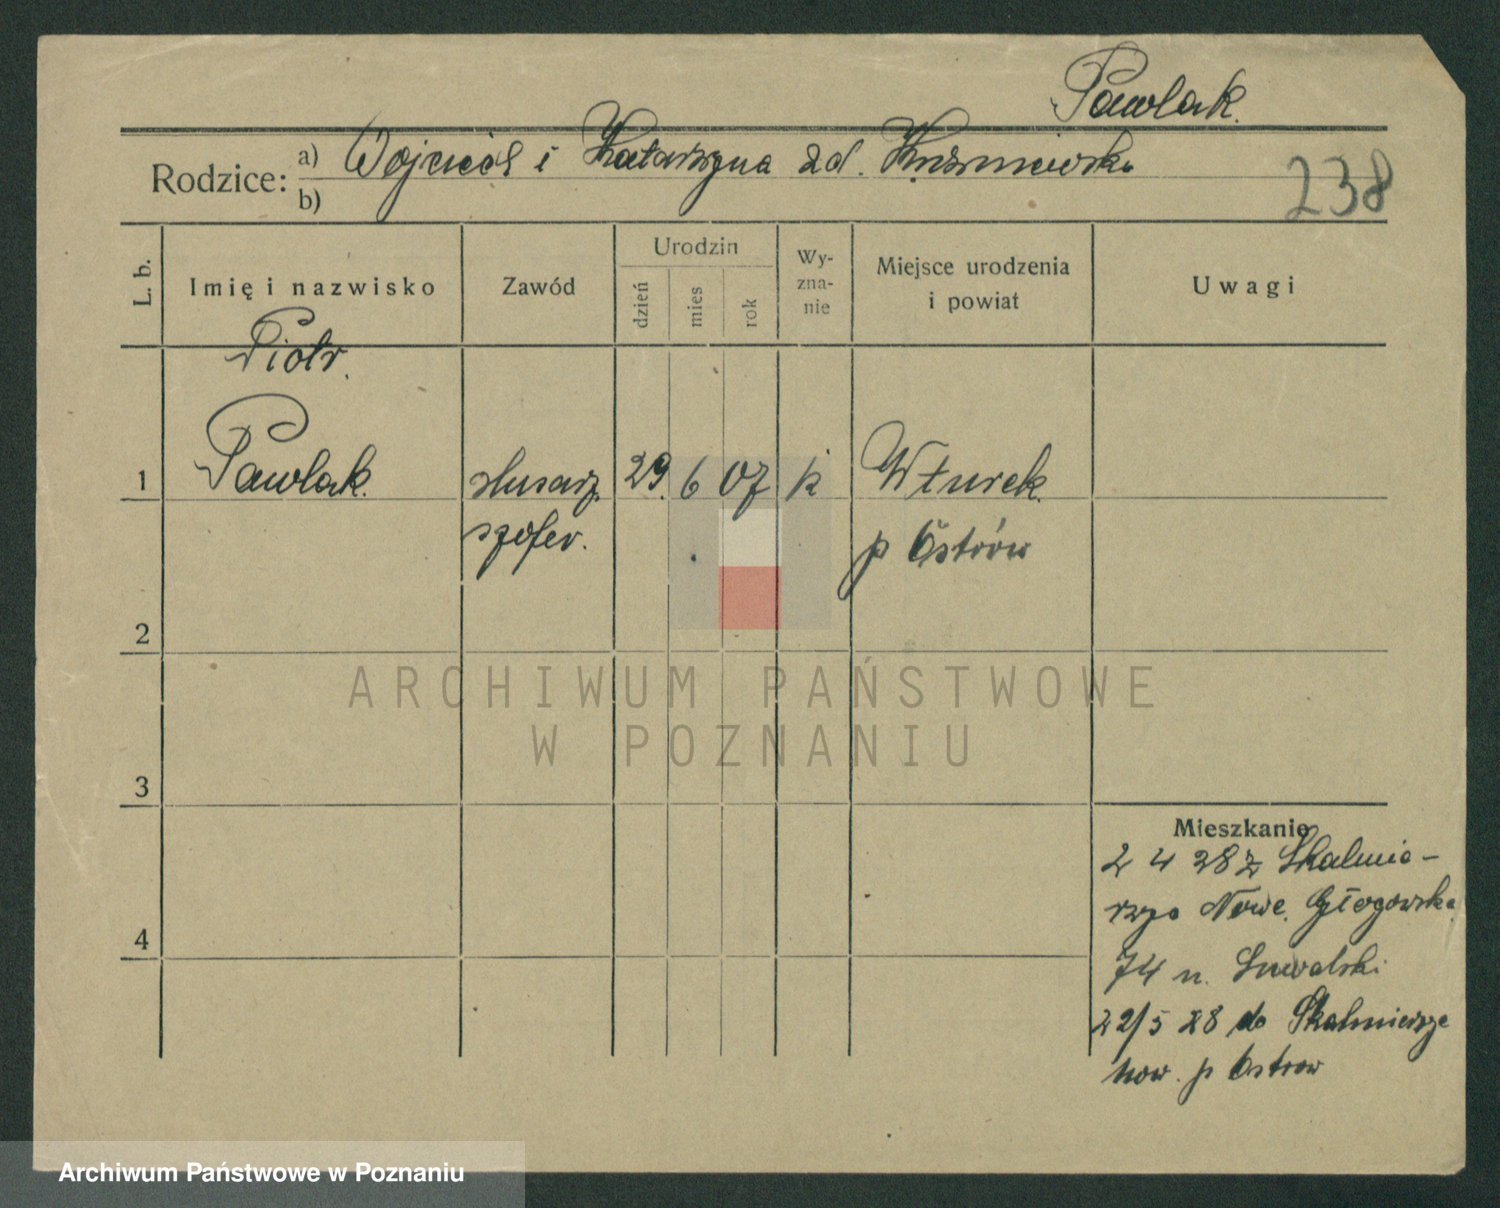 Pawlak.
Rodzice: a) Wojciech i Katarzyna zd.
b)
238
L. b.
Imię i nazwisko
Zawód
Urodzin
dzień
mies
rok
Wy-
zna-
nie
Miejsce urodzenia
i powiat
Uwagi
Piotr.
1 Pawlak. slusarz. 29. 6 07 k Wturek
szofer. p Ostrów
2
ARCHIWUM PAŃSTWOWE
W POZNANIU
3
Mieszkanie
2 4 28 z Skalmie-
rzyc Nowe. Głogowska
4
74 u.
22/5 28 do Skalmierzyce
now. p Ostrow
Archiwum Państwowe w Poznaniu